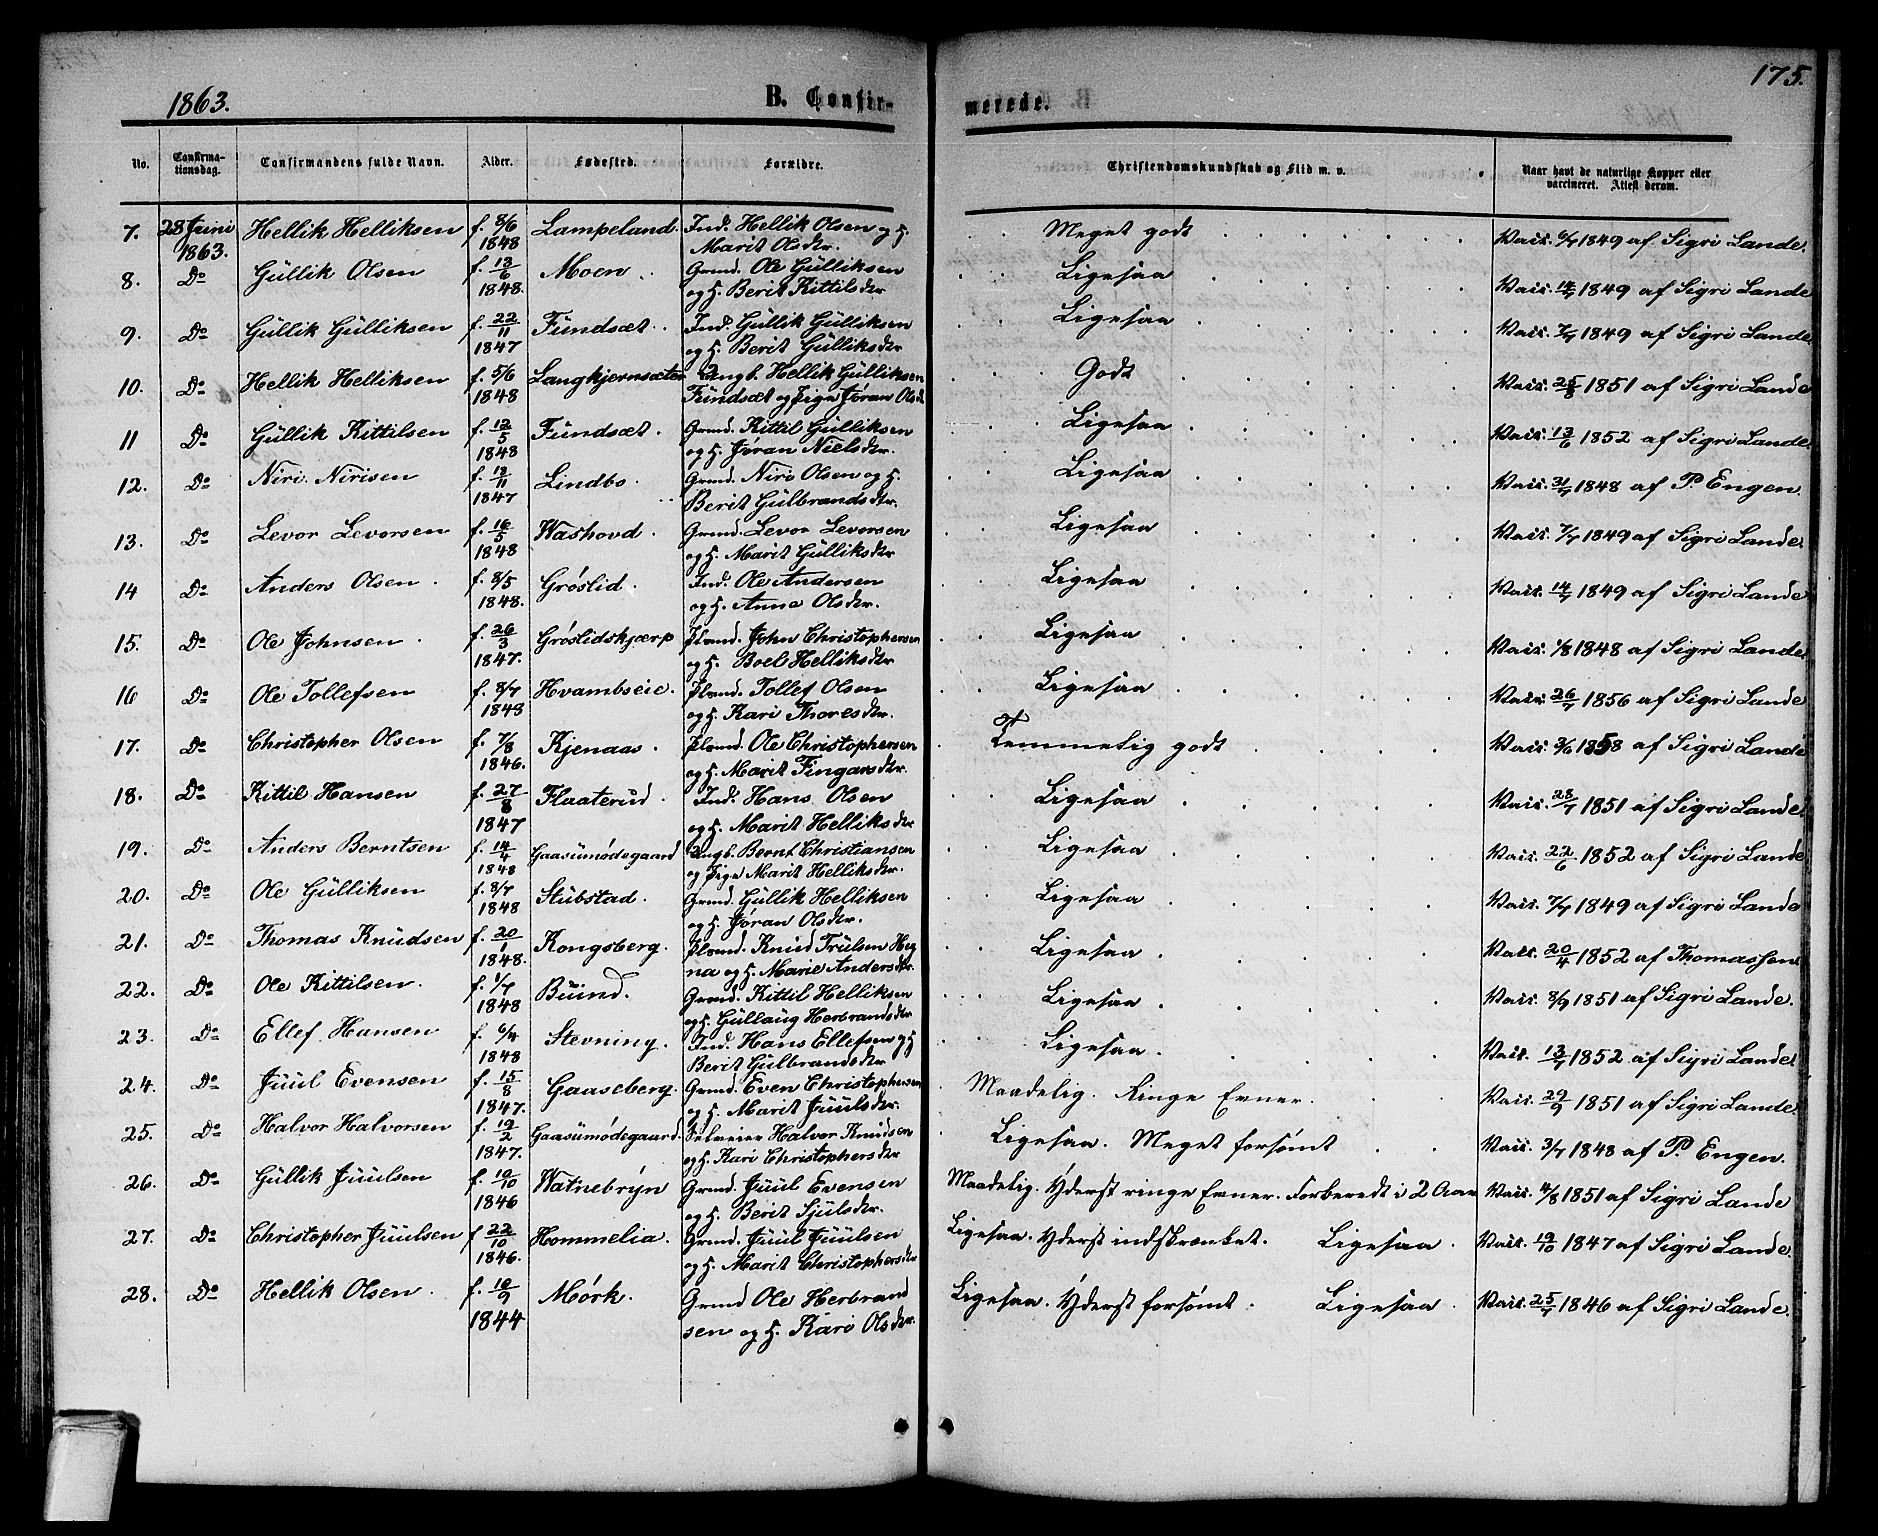 175.
1863. B. Confirmerede.
No. Confirmationsdag. Confirmandens fulde Navn. Alder. Fødested. Forældre. Christendomskundskab og Flid m. v. Naar havt de naturlige Kopper eller vaccineret. Attest derom.
7. 28 Juni 1863. Hellik Helliksen f. 8/6 1848 Lampeland. Ind. Hellik Olsen og H. Marit Olsdtr. Meget godt Vacc. 6/7 1849 af Sigri Lande.
8. Do Güllik Olsen f. 13/6 1848. Moen. Grmd. Ole Gülliksen og H. Berit Kittilsdtr Ligesaa Vacc. 14/7 1849 af Sigri Lande
9. Do Güllik Gülliksen f. 22/11 1847 Fündsæt. Ind. Güllik Gülliksen og H. Berit Gülliksdtr Ligesaa Vacc. 7/7 1849 af Sigri Lande.
10. Do Hellik Helliksen f. 5/6 1848 Langkjernsæter Ungk. Hellik Gülliksen Fündsæt og Pige Jøran Olsd. Godt Vacc. 25/8 1851 af Sigri Lande
11 Do Güllik Kittilsen f. 12/5 1848 Fündsæt. Grmd. Kittil Gülliksen og H. Jøran Nielsdtr. Ligesaa Vacc. 13/6 1852 af Sigri Lande.
12. Do Niri Nirisen f. 13/11 1847 Lindbo. Grmd. Niri Olsen og H. Berit Gülbrandsdtr. Ligesaa Vacc. 31/7 1848 af P. Engen.
13. Do Levor Levorsen f. 16/5 1848 Washovd. Grmd. Levor Levorsen og H. Marit Gülliksdtr Ligesaa Vacc. 7/7 1849 af Sigri Lande.
14 Do Anders Olsen. f. 8/5 1848. Gróslid. Ind. Ole Andersen og H. Anne Olsdtr. Ligesaa Vacc. 14/7 1849 af Sigri Lande
15. Do Ole Johnsen f. 26/3 1847. Gróslidskjærp Plmd. John Christophersen og H. Boel Helliksdtr Ligesaa Vacc. 1/8 1848 af Sigri Lande.
16 Do Ole Tollefsen f. 8/7 1848 Hvambseie. Plmd. Tollef Olsen og H. Kari Thoresdtr. Ligesaa Vacc. 26/7 1856 af Sigri Lande
17. Do Christopher Olsen f. 7/8 1846. Kjenaas. Plmd. Ole Christophersen og H. Marit Fingarsdtr. Temmelig godt Vacc. 3/6 1858 af Sigri Lande
18. Do Kittil Hansen f. 27/8 1847 Flaaterüd. Ind. Hans Olsen og H. Marit Helliksdtr Ligesaa Vacc. 28/7 1851 af Sigri Lande
19. Do Anders Berntsen f. 14/4 1848 Gaasümødegaard Ungk. Bernt Christiansen og Pige Marit Helliksdtr. Ligesaa Vacc. 22/6 1852 af Sigri Lande
20. Do Ole Gülliksen f. 8/7 1848 Stübstad. Grmd. Güllik Helliksen og H. Jøran Olsdtr. Ligesaa Vacc. 7/7 1849 af Sigri Lande
21. Do Thomas Knüdsen f. 20/1 1848. Kongsberg. Plmd. Knüd Trülsen Hegna og H. Marie Andersdtr. Ligesaa Vacc. 20/4 1852 af Thomassen
22. Do Ole Kittilsen. f. 1/7 1848 Büind. Grmd. Kittil Helliksen og H. Güllaüg Herbrandsdtr Ligesaa Vacc. 8/9 1851 af Sigri Lande.
23. Do Ellef Hansen f. 6/4 1848 Stevning. Ind. Hans Ellefsen og H. Berit Gülbrandsdtr. Ligesaa. Vacc. 13/7 1852 af Sigri Lande.
24. Do Jüül Evensen f. 15/8 1847. Gaaseberg. Grmd. Even Christophersen og H. Marit Jüülsdtr. Maadelig. Ringe Evner. Vacc. 29/9 1851 af Sigri Lande.
25. Do Halvor Halvorsen f. 19/2 1847. Gaasümødegaard. Selveier Halvor Knüdsen og H. Kari Christophersdtr Ligesaa. Meget forsømt Vacc. 3/7 1848 af P. Engen.
26. Do Güllik Jüülsen f. 10/10 1846 Watnebrÿn Grmd. Jüül Evensen og H. Berit Sjülsdtr. Maadelig. Yderst ringe Evner. Forberedt i 2 Aar Vacc. 4/8 1851 af Sigri Lande
27. Do Christopher Jüülsen f 22/10 1846. Hommelia. Grmd. Jüül Jüülsen og H. Marit Christophersdtr Ligesaa. Yderst indskrænket. Ligesaa. Vacc. 19/10 1847 af Sigri Lande.
28. Do Hellik Olsen f. 10/9 1844 Mórk. Grmd Ole Herbrandsen og H. Kari Olsdtr. Ligesaa. Yderst forsømt. Ligesaa. Vacc. 25/7 1846 af Sigri Lande.